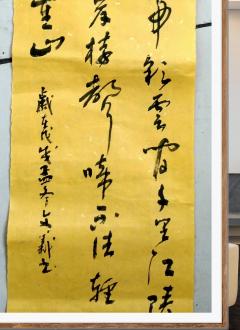 帝彩雲間千里江陵
岸猿聲啼不住輕
重山
歲在戊戌孟冬文義書